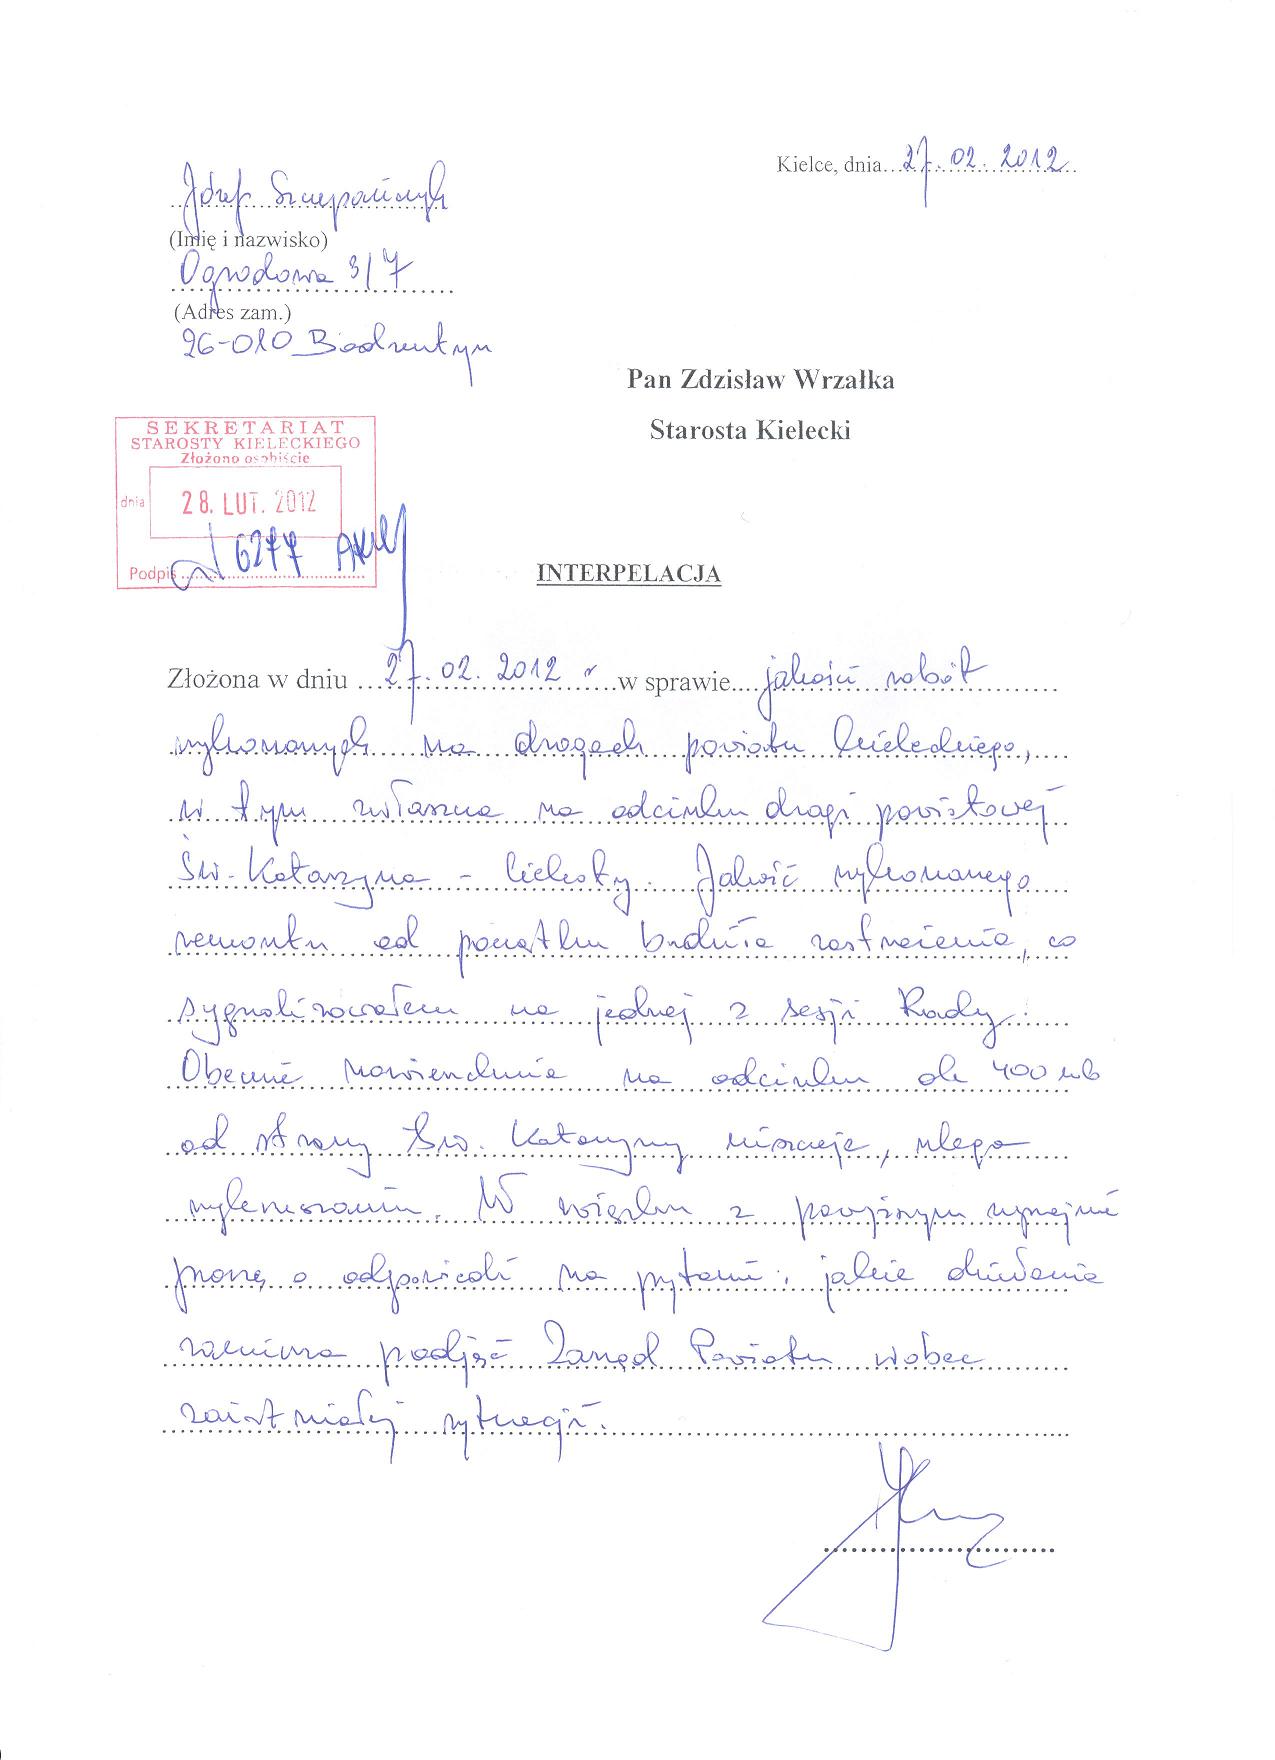 Kielce, dnia 27.02.2012
Józef Szczepańczyk
(Imię i nazwisko)
Ogrodowa 3/7
(Adres zam.)
26-010 Bodzentyn
Pan Zdzisław Wrzałka
Starosta Kielecki
SEKRETARIAT
STAROSTY KIELECKIEGO
Złożono osobiście
dnia 28. LUT. 2012
6277
Podpis
INTERPELACJA
Złożona w dniu 27.02.2012 r w sprawie jakości robót
wykonanych na drogach powiatu kieleckiego,
w tym zwłaszcza na odcinku drogi powiatowej
Św. Katarzyna - Ciekoty. Jakość wykonanego
remontu od początku budziła zastrzeżenia, co
sygnalizowałem na jednej z sesji Rady.
Obecnie nawierzchnia na odcinku ok 400 mb
od strony Św. Katarzyny niszczeje, ulega
wykruszaniu. W związku z powyższym uprzejmie
proszę o odpowiedź na pytanie: jakie działania
zamierza podjąć Zarząd Powiatu wobec
zaistniałej sytuacji.